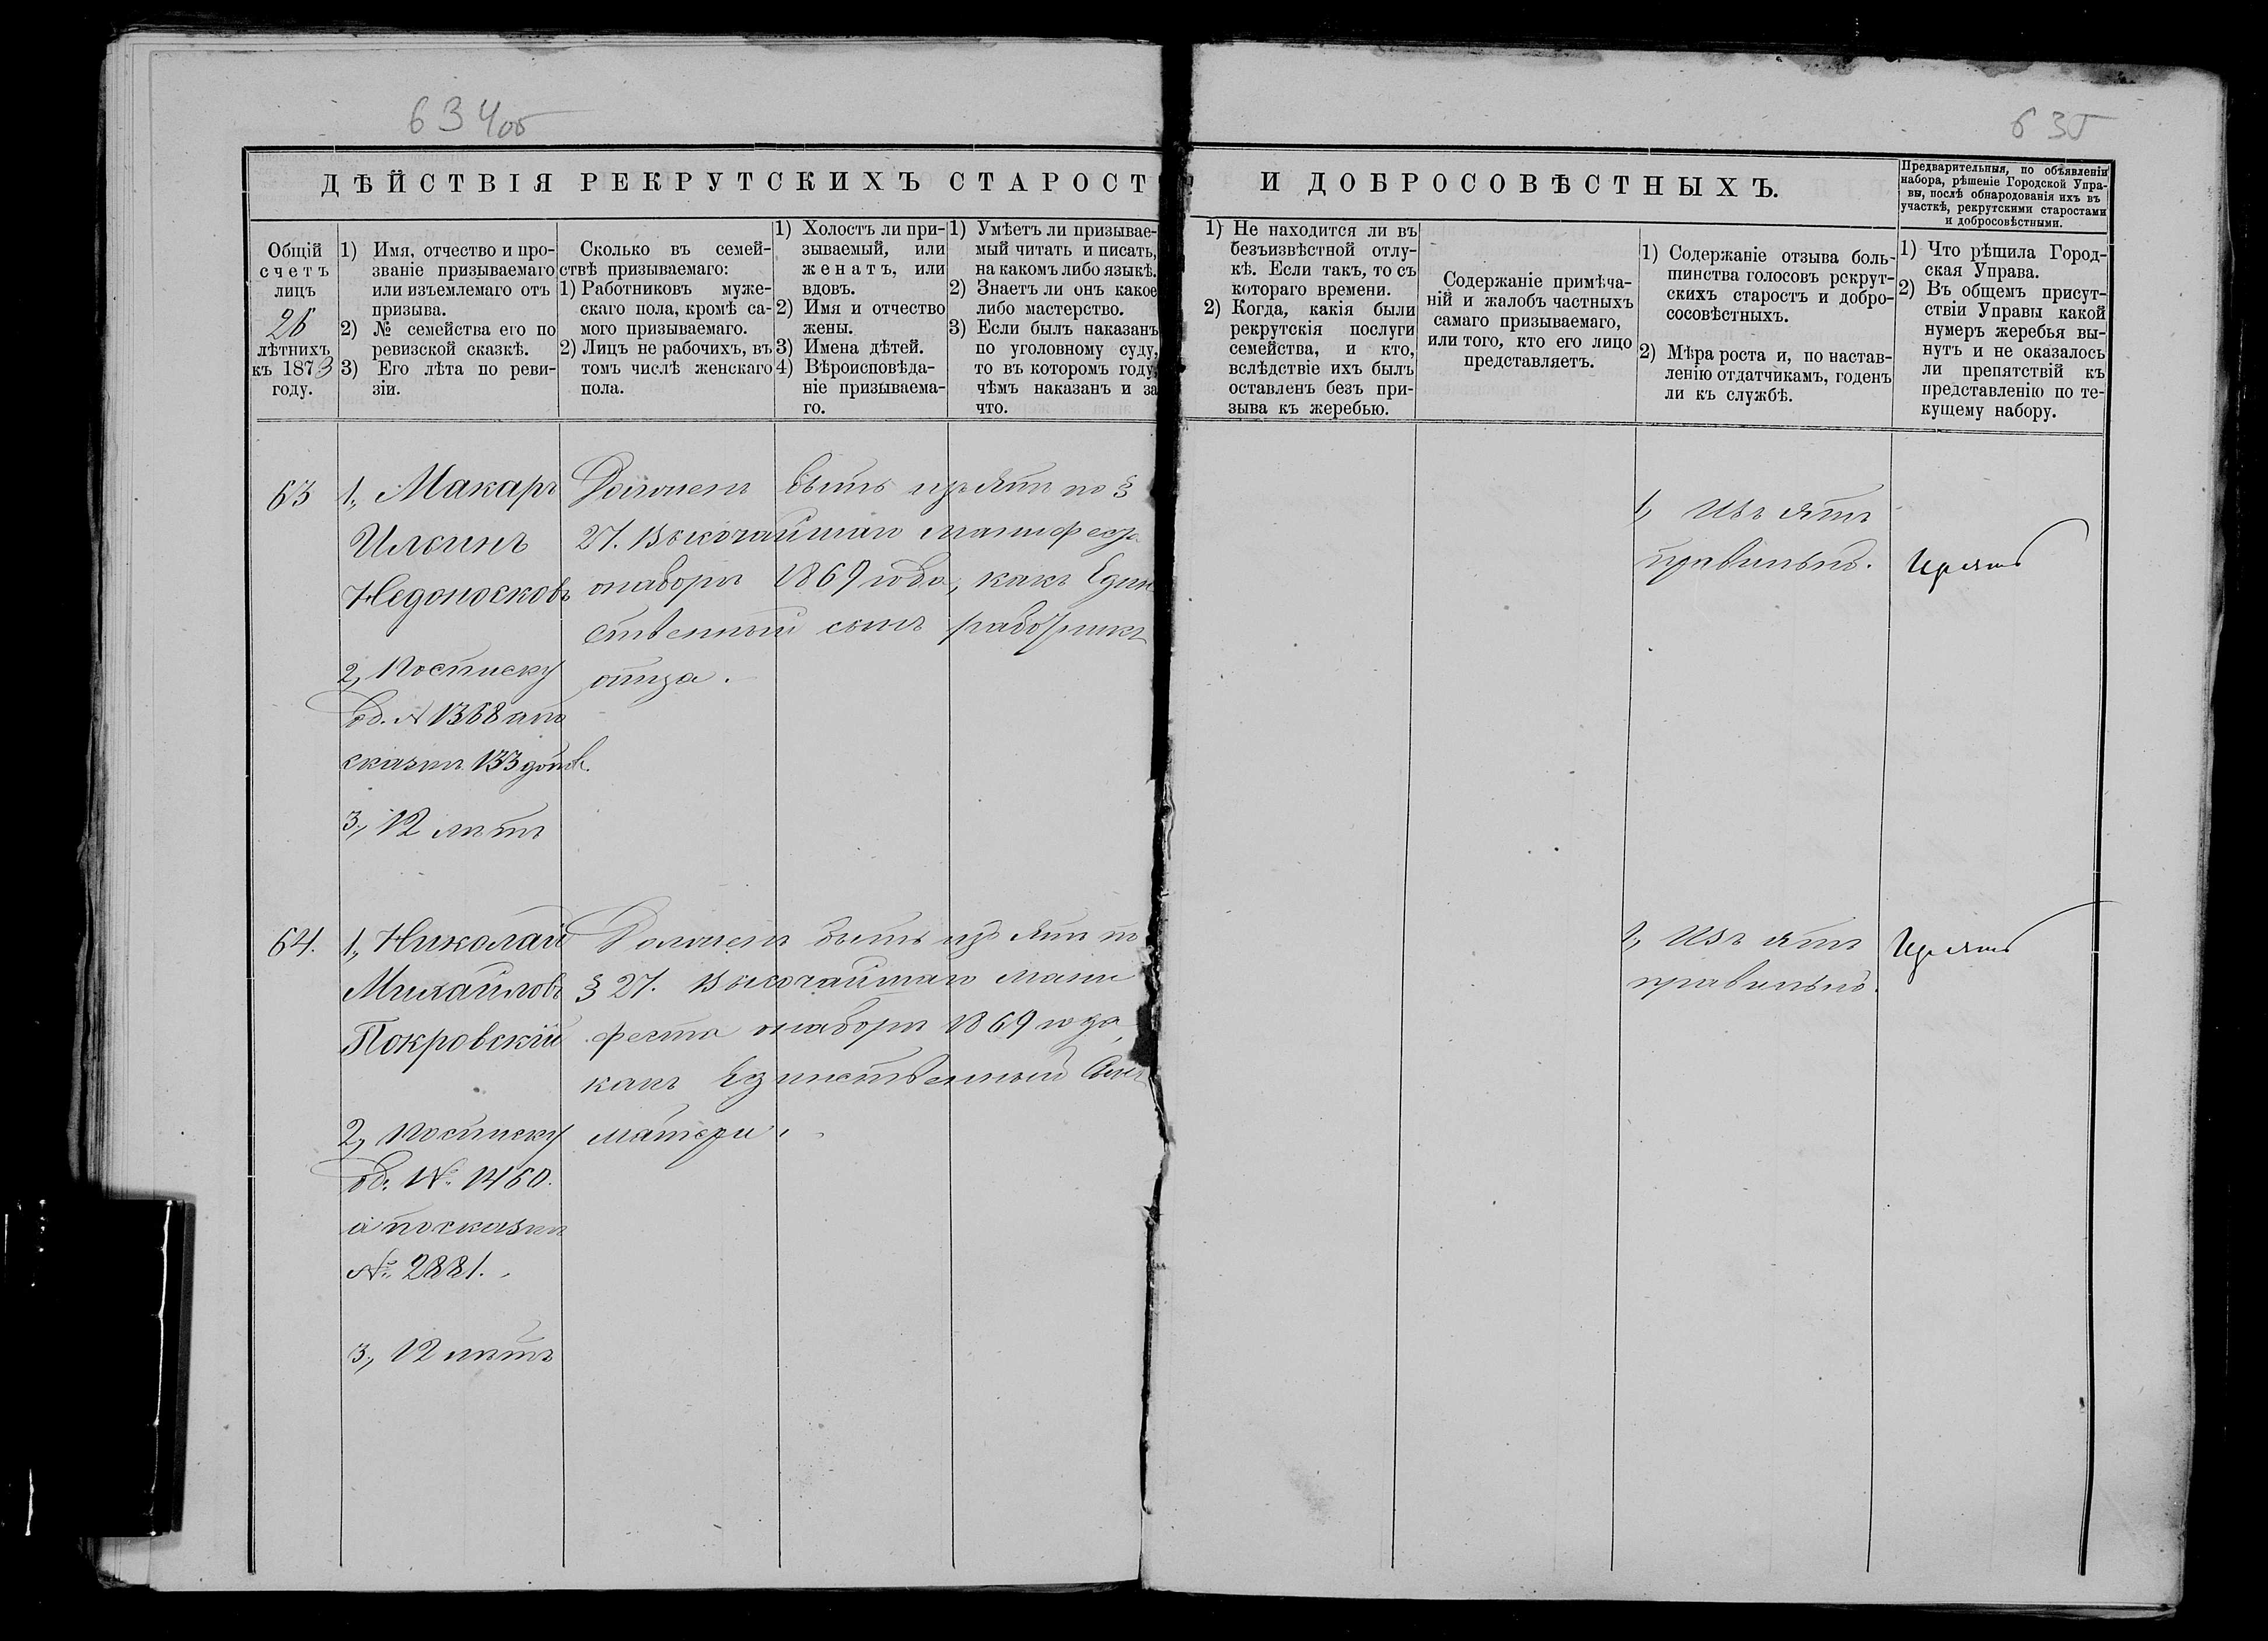 634об
635
ДѢЙСТВІЯ РЕКРУТСКИХЪ СТАРОСТ
И ДОБРОСОВѢСТНЫХЪ.
Предварительныя, по объявленіи
набора, рѣшеніе Городской Упра-
вы, послѣ обнародованія ихъ въ
участкѣ, рекрутскими старостами
и добросовѣстными.
Общій
счетъ
лицъ
26
лѣтнихъ
къ 1873
году.
1) Имя, отчество и про-
званіе призываемаго
или изъемлемаго отъ
призыва.
2) № семейства его по
ревизской сказкѣ.
3) Его лѣта по реви-
зіи.
Сколько въ семей-
ствѣ призываемаго:
1) Работниковъ муже-
скаго пола, кромѣ са-
мого призываемаго.
2) Лицъ не рабочихъ, въ
томъ числѣ женскаго
пола.
1) Холостъ ли при-
зываемый, или
женатъ, или
вдовъ.
2) Имя и отчество
жены.
3) Имена дѣтей.
4) Вѣроисповѣда-
ніе призываема-
го.
1) Умѣетъ ли призывае-
мый читать и писать,
на какомъ либо языкѣ.
2) Знаетъ ли онъ какое
либо мастерство.
3) Если былъ наказанъ
по уголовному суду,
то въ которомъ году,
чѣмъ наказанъ и за
что.
1) Не находится ли въ
безъизвѣстной отлу-
кѣ. Если такъ, то съ
котораго времени.
2) Когда, какія были
рекрутскія послуги
семейства, и кто,
вслѣдствіе ихъ былъ
оставленъ безъ при-
зыва къ жеребью.
Содержаніе примѣча-
ній и жалобъ частныхъ
самаго призываемаго,
или того, кто его лицо
представляетъ.
1) Содержаніе отзыва боль-
шинства голосовъ рекрут-
скихъ старостъ и добро-
сосовѣстныхъ.
2) Мѣра роста и, по настав-
ленію отдатчикамъ, годенъ
ли къ службѣ.
1) Что рѣшила Город-
ская Управа.
2) Въ общемъ присут-
ствіи Управы какой
нумеръ жеребья вы-
нутъ и не оказалось
ли препятствій къ
представленію по те-
кущему набору.
63
1, Макаръ
Ильинъ
Недоносковъ
2, По списку
№ 1368 а по
сказкѣ 133
3, 12 лѣтъ
Долженъ быть изъятъ по §
27. Высочайшаго манифеста
о наборѣ 1869 года, какъ Един
ственный сынъ работникъ
отца.
1, Изъятъ
правильно.
Изъятъ
64.
1, Николай
Михайловъ
Покровскій
2, По списку
№ 1460.
а по сказкѣ
№ 2881.
3, 12 лѣтъ
Долженъ быть изъятъ по
§ 27. Высочайшаго мани
феста о наборѣ 1869 года,
какъ Единственный Сынъ
матери.
1, Изъятъ
правильно.
Изъятъ